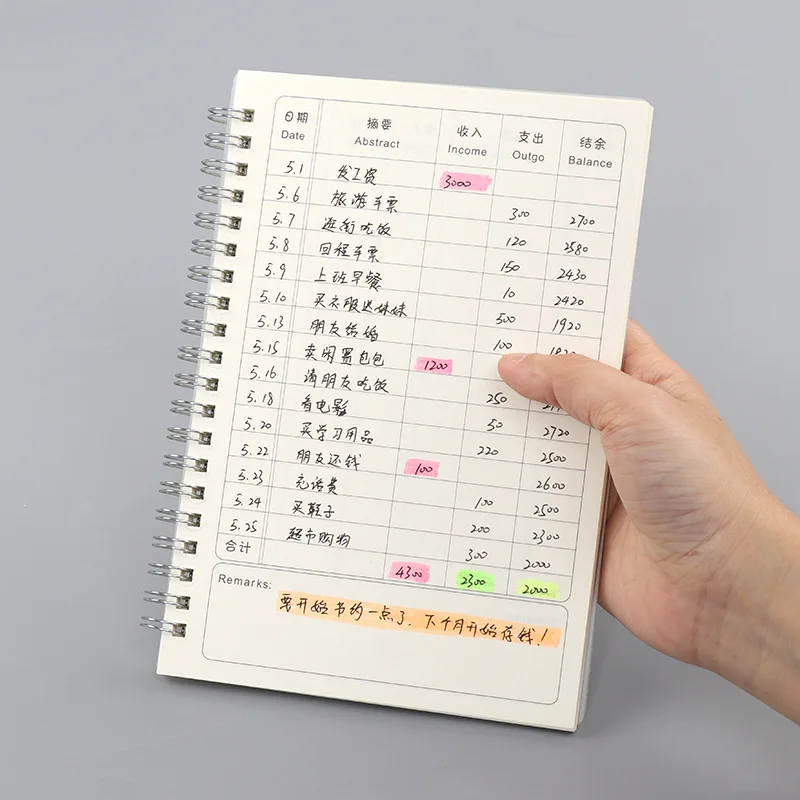 日期 摘要 收入 支出 结余
Date Abstract Income Outgo Balance
5.1 发工资 3000
5.6 旅游车票 300 2700
5.7 逛街吃饭 120 2580
5.8 回程车票 150 2430
5.9 上班早餐 10 2420
5.10 买衣服送妹妹 500 1920
5.13 朋友结婚 100
5.15 卖闲置包包 1200
5.16 请朋友吃饭 250
5.18 看电影 50 2720
5.20 买学习用品 220 2500
5.22 朋友还钱 100 2600
5.23 充话费 100 2500
5.24 买鞋子 200 2300
5.25 超市购物 300 2000
合计 4300 2300 2000
Remarks:
要开始节约一点了,下个月开始存钱!